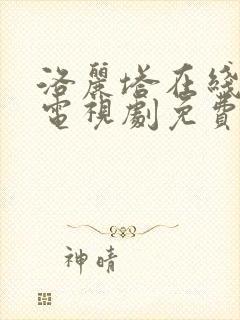 洛麗塔在綫
電視劇免費
神晴